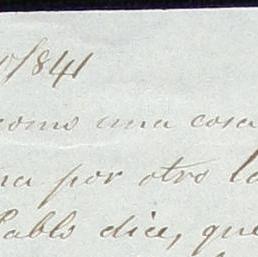 1841
como una cosa
por otro
Pablo dice, que